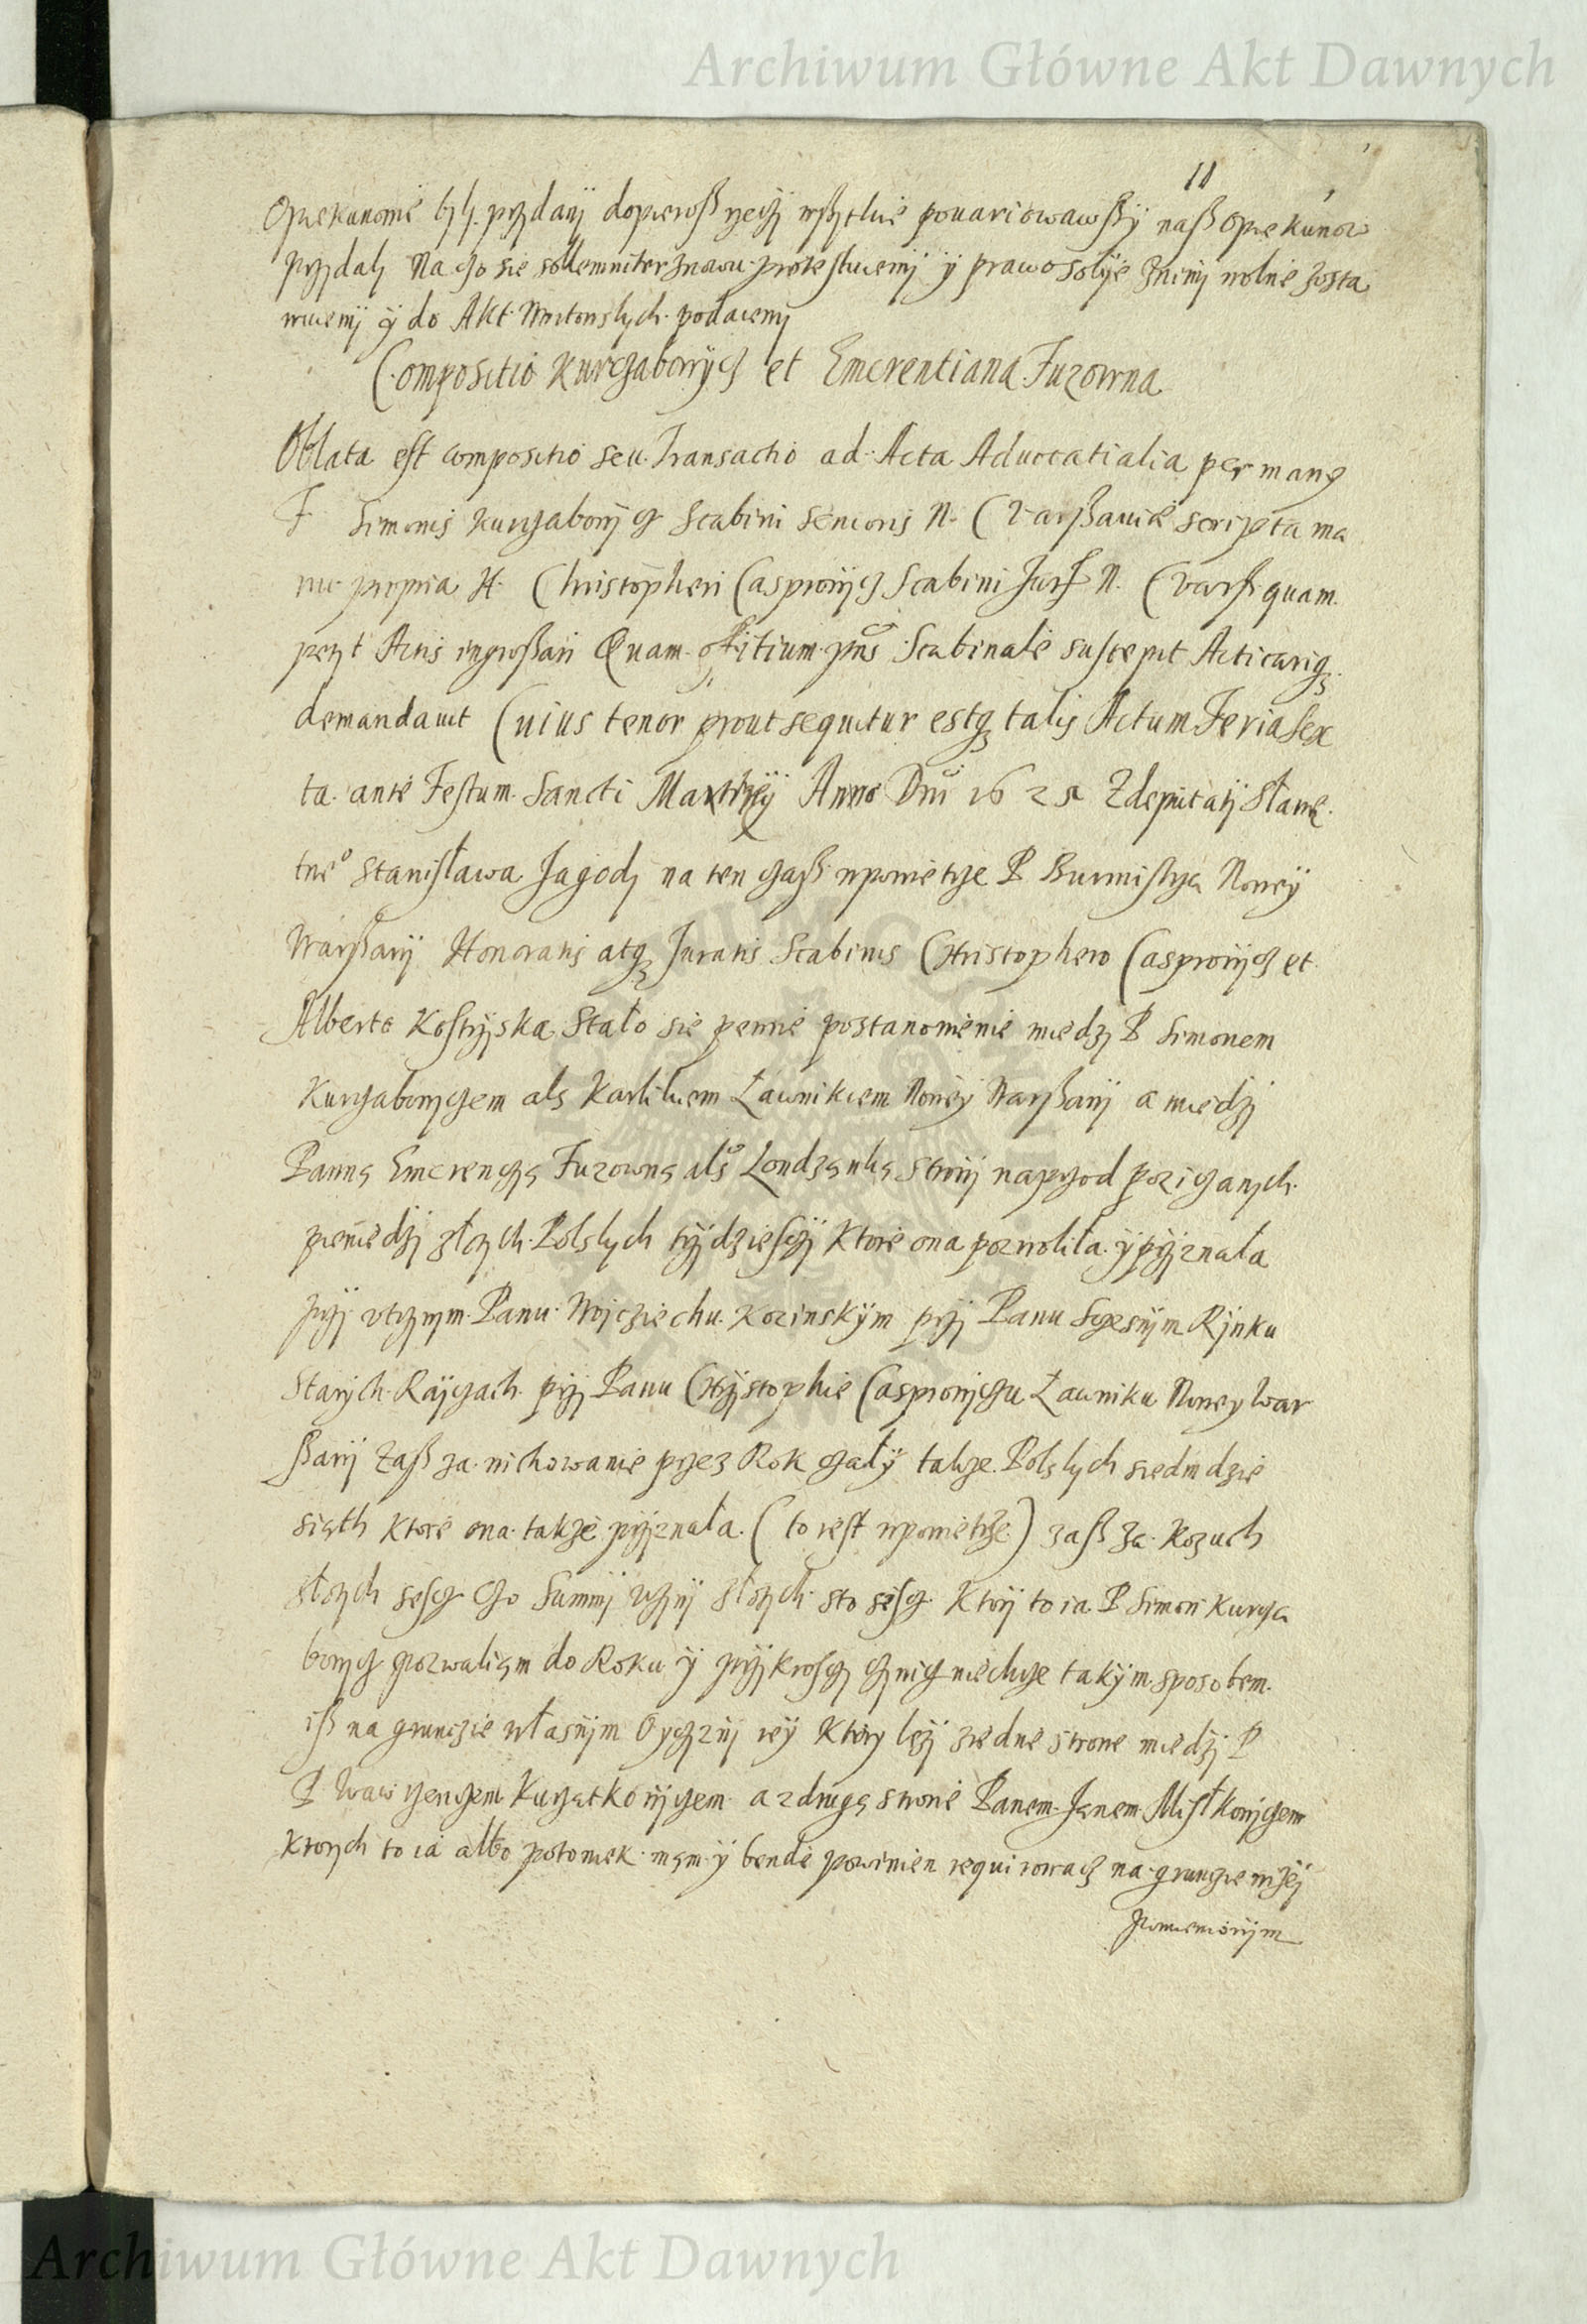 Archiwum Główne Akt Dawnych
11
Opiekunowie byli przydany dopierosz rzeczy wszytkie powariowawszy nasz Opiekunow
przydaly Na czo sie sollemniter znowu protestuiemy y prawo sobye znimy wolne zosta
wuiemy y do Akt Woitowskych podaiemy
Compositio Kurczabowycz et Emerentiana Fuzowna
Oblata est compositio seu Transactio ad Acta Aduocatialia per manus
F Simonis Kurczabowycz Scabini Senioris N. Varßauiae scripta ma
nu propria H. Christopheri Casprowycz Scabini Jur N. Varß quam
petyt Actis ingroßari Quam offitium pns Scabinale suscepit Acticariq
demandauit Cuius tenor prout sequitur estq talis Actum Feria Sex
ta ante Festum Sancti Anno Dni 1625 Z deputaty Sławe
tne° Stanisława Jagody na ten czasß npowietrze P Burmistrza Nowey
Warßawy Honoratis atq Juratis Scabinis Christophero Casprowycz et
Alberto Kostrzyska Stało sie pewne postanowienie miedzy P Simonem
Kurczabowyczem als Karlikiem Ławnikiem Nowey Warßawy a miedzy
Panną Emerenczą Fuzowną als Londzanką Strony naprzod pozyczanych
pieniedzy złotych Polskych trzydziesczy Ktore ona pozwoliła y przyznała
przy vtczywym Panu Wojcziechu Kozinskym przy Panu Sczesnym Rynku
Starych Raÿczach przy Panu Chrystophie Casprowyczu Ławniku Nowey War
ßawy Zasß za nichowanie przez Rok czały takze Polskych siedmdzie
siąth Ktore ona takze przyznała (to iest npowietrze) zasß za Kozuch
złotych sescz Czo Summy vczyny złotych sto sescz Ktory to ia P Simon Kurcza
bowycz pozwaliąm do Roku y przykrosczy czynicz niechcze takym sposobem
isß na grunczie własnym Oyczyzny iey Ktory lezy ziedne strone miedzy P
P Wawrzenczem Kuczatkowyczem a z drugą strone Panem Janem Mistkowyczem
Ktorych to ia albo potomek mąm y bende powinien requirowacz na grunczie wyzey
pomienionym
Archiwum Główne Akt Dawnych